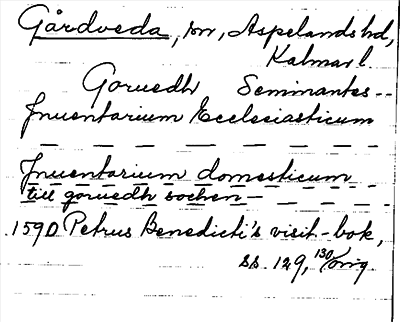 Gårdveda, sn, Aspelands hd,
Kalmar l.
Goruedh Seminantes --
Inuentarium Ecclesiasticum
— — — — — — — —
Inuentarium domesticum
till goruedh sochen —
1590 Petrus Benedicti's visit-bok,
ss. 129, 130/orig